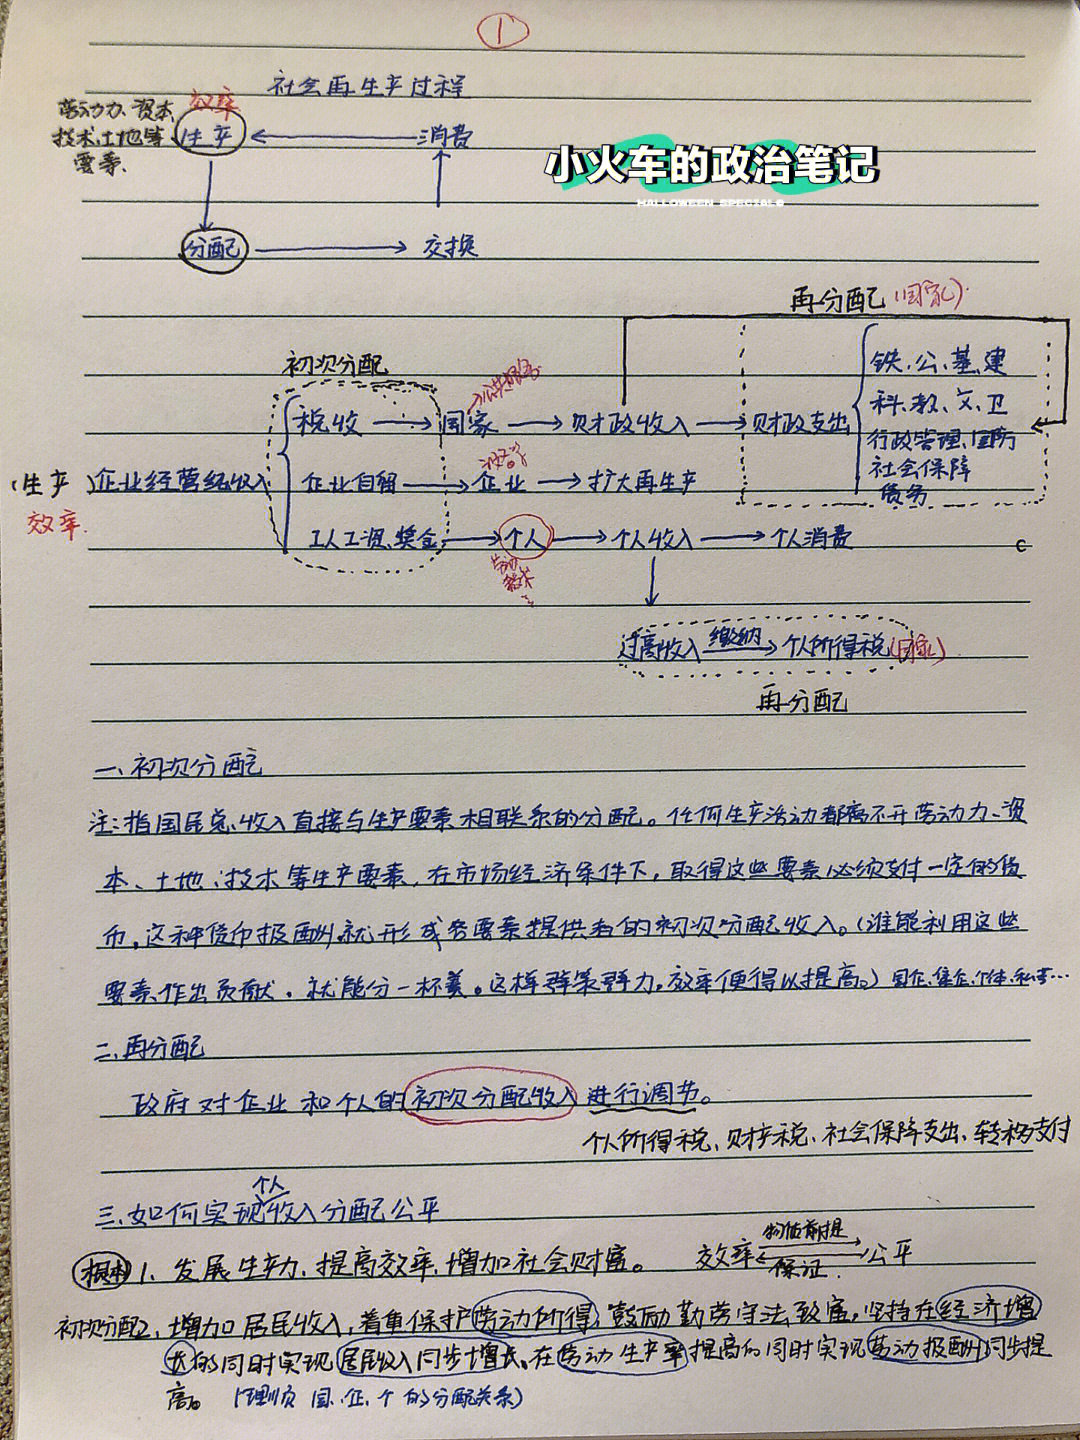 ①
社会再生产过程
劳动力、资本、
技术、土地等
要素、
效率
生产
消费
小火车的政治笔记
HALLOWEEN SPECIALS
分配
交换
再分配(国家)
初次分配
公共服务
铁、公、基、建
科、教、文、卫
行政管理、国防
社会保障
债务
税收 国家 财政收入 财政支出
(生产)企业经营纯收入
效率.
企业自留 企业 扩大再生产
工人工资、奖金 个人 个人收入 个人消费
劳动
技术
过高收入 缴纳 个人所得税(国家)
再分配
一、初次分配
注:指国民总收入直接与生产要素相联系的分配。任何生产活动都离不开劳动力、资
本、土地、技术等生产要素,在市场经济条件下,取得这些要素必须支付一定的货
币,这种货币报酬就形成各要素提供者的初次分配收入。(谁能利用这些
要素作出贡献,就能分一杯羹。这样群策群力,效率便得以提高。)国企、集企、个体、私营…
二、再分配
政府对企业和个人的初次分配收入进行调节。
个人所得税、财产税、社会保障支出、转移支付
个人
三、如何实现收入分配公平
根本 1、发展生产力、提高效率、增加社会财富。
效率 物质前提 公平
保证
初次分配2、增加居民收入,着重保护劳动所得,鼓励勤劳守法致富,坚持在经济增
长的同时实现居民收入同步增长、在劳动生产率提高的同时实现劳动报酬同步提
高。(理顺国、企、个的分配关系)